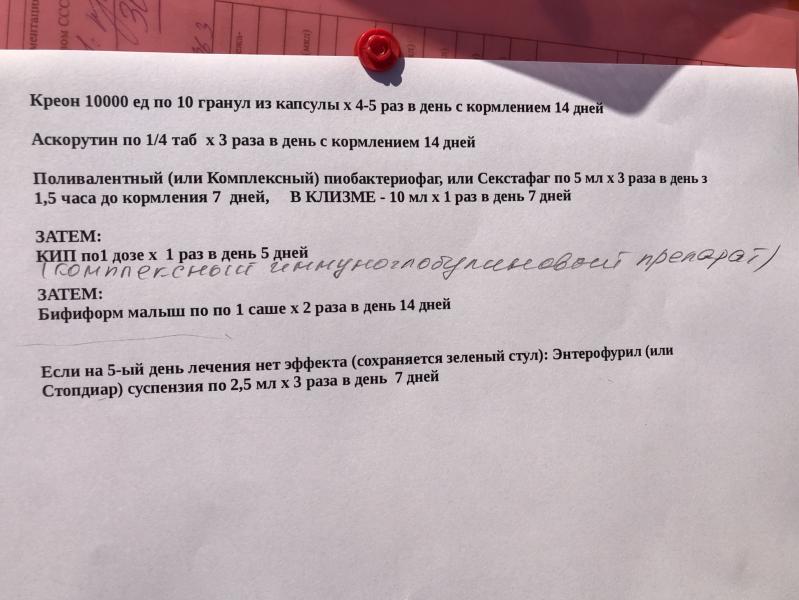 ментаци
ом ССС
Креон 10000 ед по 10 гранул из капсулы х 4-5 раз в день с кормлением 14 дней
Аскорутин по 1/4 таб х 3 раза в день с кормлением 14 дней
Поливалентный (или Комплексный) пиобактериофаг, или Секстафаг по 5 мл х 3 раза в день з
1,5 часа до кормления 7 дней, В КЛИЗМЕ - 10 мл х 1 раз в день 7 дней
ЗАТЕМ:
КИП по1 дозе х 1 раз в день 5 дней
(комплексный иммуноглобулиновый препарат)
ЗАТЕМ:
Бифиформ малыш по по 1 саше х 2 раза в день 14 дней
Если на 5-ый день лечения нет эффекта (сохраняется зеленый стул): Энтерофурил (или
Стопдиар) суспензия по 2,5 мл х 3 раза в день 7 дней